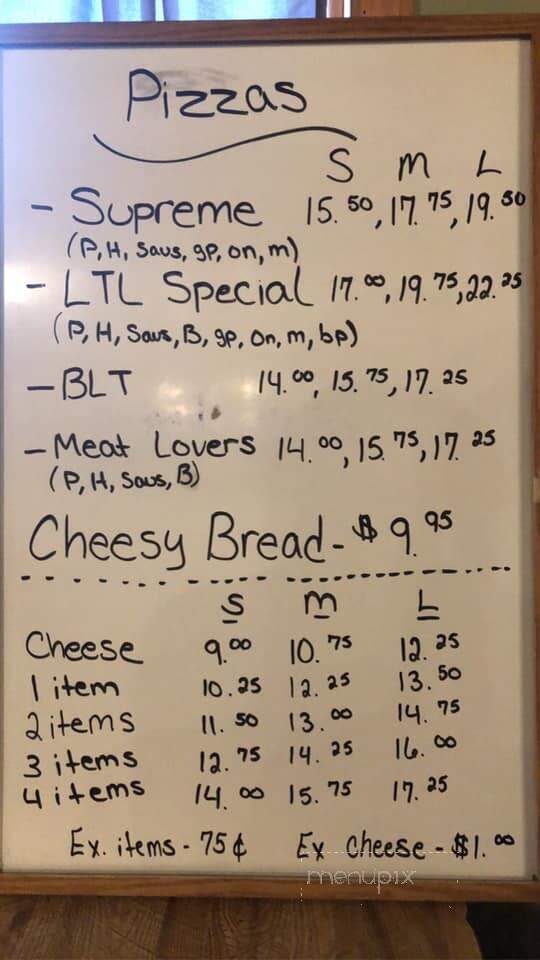 Pizzas
S M L
- Supreme 15.50, 17.75, 19.50
(P, H, Saus, gp, on, m)
- LTL Special 17.00, 19.75, 22.25
(P, H, Saus, B, gp, on, m, bp)
- BLT 14.00, 15.75, 17.25
- Meat Lovers 14.00, 15.75, 17.25
(P, H, Saus, B)
Cheesy Bread - $9.95
S M L
Cheese 9.00 10.75 12.25
1 item 10.25 12.25 13.50
2 items 11.50 13.00 14.75
3 items 12.75 14.25 16.00
4 items 14.00 15.75 17.25
Ex. items - 75¢ Ex cheese - $1.00
menupix